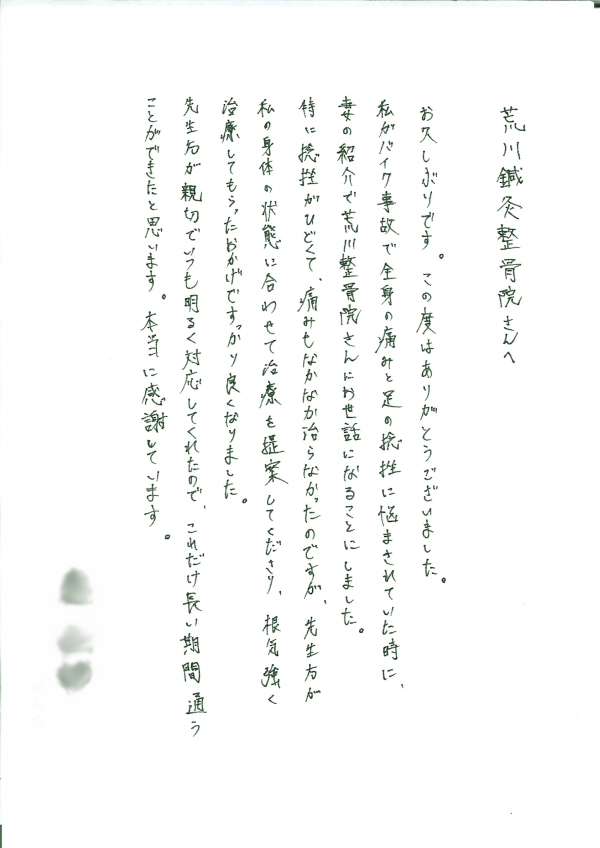 荒川鍼灸整骨院さんへ
お久しぶりです。この度はありがとうございました。
私がバイク事故で全身の痛みと足の捻挫に悩まされていた時に、
妻の紹介で荒川整骨院さんにお世話になることにしました。
特に捻挫がひどくて、痛みもなかなか治らなかったのですが、先生方が
私の身体の状態に合わせて治療を提案してくださり、根気強く
治療してもらったおかげですっかり良くなりました。
先生方が親切でいつも明るく対応してくれたので、これだけ長い期間通う
ことができたと思います。本当に感謝しています。